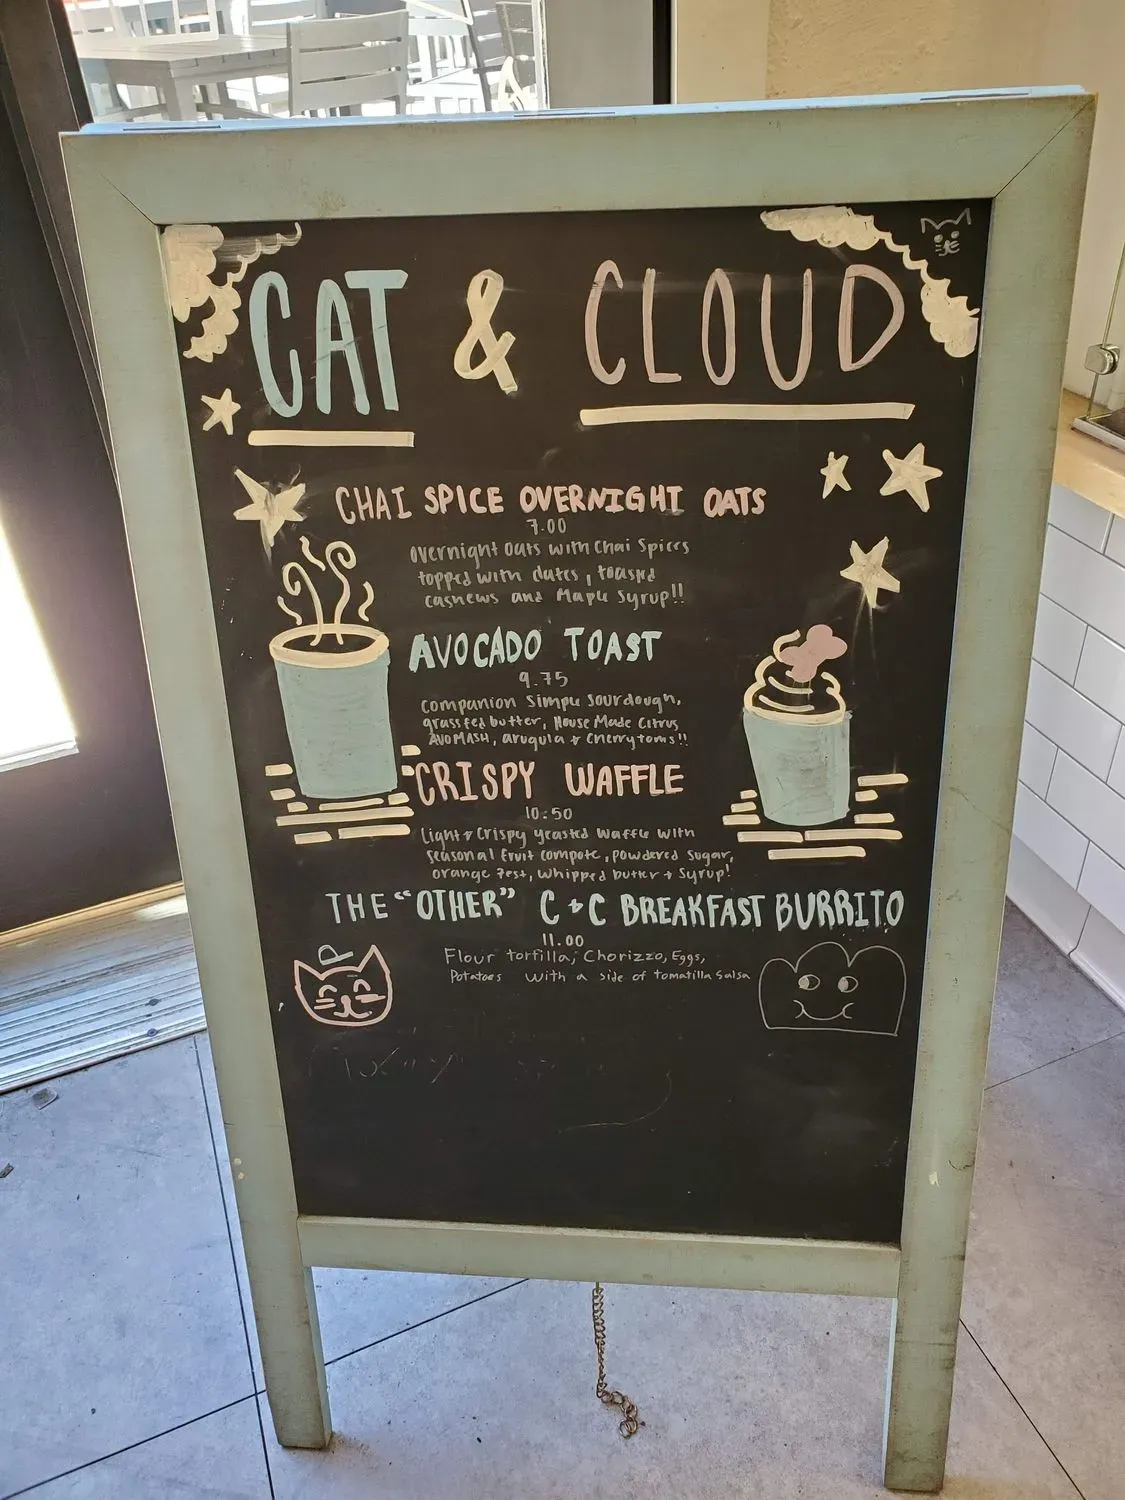 CAT & CLOUD
CHAI SPICE OVERNIGHT OATS
7.00
overnight oats with Chai Spices
topped with dates, toasted
cashews and Maple Syrup!!
AVOCADO TOAST
9.75
companion simple sourdough,
grassfed butter, House Made Citrus
AVO MASH, arugula + Cherry toms!!
CRISPY WAFFLE
10.50
Light + Crispy yeasted waffle with
seasonal fruit compote, powdered sugar,
orange zest, whipped butter + syrup!
THE "OTHER" C + C BREAKFAST BURRITO
11.00
Flour tortilla, Chorizzo, Eggs,
Potatoes with a side of tomatilla Salsa